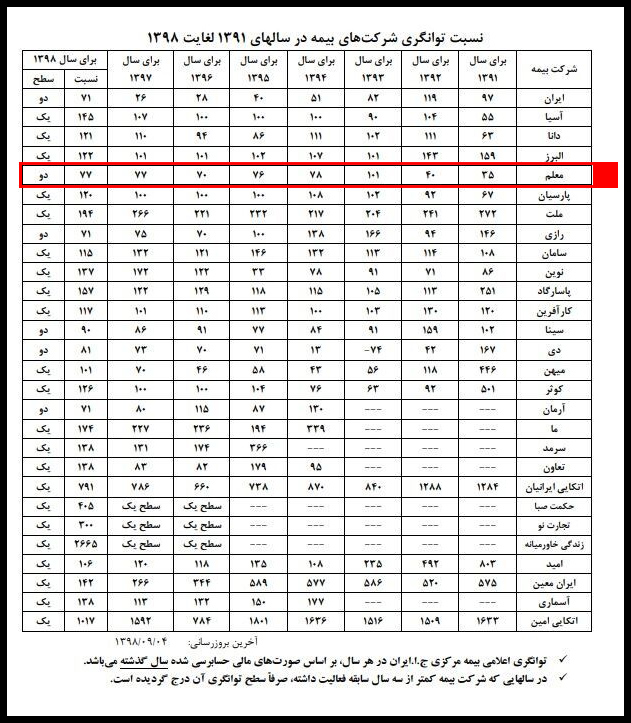 نسبت توانگری شرکت‌های بیمه در سالهای ۱۳۹۱ لغایت ۱۳۹۸
شرکت بیمه برای سال ۱۳۹۱ برای سال ۱۳۹۲ برای سال ۱۳۹۳ برای سال ۱۳۹۴ برای سال ۱۳۹۵ برای سال ۱۳۹۶ برای سال ۱۳۹۷ برای سال ۱۳۹۸
نسبت سطح
ایران ۹۷ ۱۱۹ ۸۲ ۵۱ ۴۰ ۲۸ ۲۶ ۷۱ دو
آسیا ۵۵ ۱۰۴ ۹۰ ۱۰۰ ۱۰۰ ۱۰۰ ۱۰۷ ۱۴۵ یک
دانا ۶۳ ۱۱۱ ۱۰۲ ۱۱۱ ۸۶ ۹۴ ۱۱۰ ۱۲۱ یک
البرز ۱۵۹ ۱۴۳ ۱۰۱ ۱۰۷ ۱۰۲ ۱۰۱ ۱۰۱ ۱۲۲ یک
معلم ۳۵ ۴۰ ۱۰۱ ۷۸ ۷۶ ۷۰ ۷۷ ۷۷ دو
پارسیان ۶۷ ۹۲ ۱۰۲ ۱۰۸ ۱۰۰ ۱۰۰ ۱۰۰ ۱۲۰ یک
ملت ۲۷۲ ۲۴۱ ۲۰۴ ۲۱۷ ۲۳۲ ۲۲۱ ۲۶۶ ۱۹۴ یک
رازی ۱۴۶ ۹۴ ۱۶۶ ۱۳۸ ۱۰۰ ۷۰ ۷۵ ۷۱ دو
سامان ۱۰۸ ۱۱۴ ۱۱۳ ۱۳۲ ۱۴۶ ۱۲۱ ۱۳۲ ۱۱۵ یک
نوین ۸۶ ۷۱ ۹۱ ۷۸ ۳۳ ۱۲۲ ۱۷۲ ۱۳۷ یک
پاسارگاد ۲۵۱ ۱۱۳ ۱۰۵ ۱۱۵ ۱۱۸ ۱۲۹ ۱۲۲ ۱۵۷ یک
کارآفرین ۱۲۰ ۱۳۰ ۱۰۰ ۱۰۳ ۱۱۳ ۱۱۰ ۱۰۱ ۱۱۷ یک
سینا ۱۰۲ ۱۵۹ ۹۱ ۸۴ ۷۷ ۹۱ ۸۶ ۹۰ دو
دی ۱۶۷ ۴۲ -۷۴ ۱۳ ۷۱ ۷۰ ۷۳ ۸۱ دو
میهن ۴۴۶ ۱۱۸ ۵۶ ۴۳ ۵۸ ۴۶ ۷۰ ۱۰۱ یک
کوثر ۵۰۱ ۹۲ ۶۳ ۷۶ ۱۰۴ ۱۰۰ ۱۰۰ ۱۲۶ یک
آرمان --- --- --- ۱۳۰ ۸۷ ۱۱۵ ۸۰ ۷۱ دو
ما --- --- --- ۳۳۹ ۱۹۴ ۲۳۶ ۲۲۷ ۱۷۴ یک
سرمد --- --- --- --- ۳۶۶ ۱۷۴ ۱۳۱ ۱۳۸ یک
تعاون --- --- --- ۹۵ ۱۷۹ ۸۲ ۸۳ ۱۳۸ یک
اتکایی ایرانیان ۱۲۸۴ ۱۲۸۸ ۸۴۰ ۸۷۰ ۷۳۸ ۶۶۰ ۷۸۶ ۷۹۱ یک
حکمت صبا --- --- --- --- --- سطح یک سطح یک ۴۰۵ یک
تجارت نو --- --- --- --- --- سطح یک سطح یک ۳۰۰ یک
زندگی خاورمیانه --- --- --- --- --- سطح یک سطح یک ۲۶۶۵ یک
امید ۸۰۳ ۴۹۲ ۲۳۵ ۱۰۸ ۱۳۵ ۱۱۸ ۱۲۰ ۱۰۶ یک
ایران معین ۵۷۵ ۵۲۰ ۵۸۶ ۵۷۷ ۵۸۹ ۳۴۴ ۲۶۶ ۱۴۲ یک
آسماری --- --- --- ۱۷۷ ۱۵۰ ۱۳۲ ۱۱۳ ۱۳۸ یک
اتکایی امین ۱۶۳۳ ۱۵۰۹ ۱۵۱۶ ۱۶۳۶ ۱۸۰۱ ۷۸۴ ۱۵۹۲ ۱۰۱۷ یک
آخرین بروزرسانی: ۱۳۹۸/۰۹/۰۴
✓ توانگری اعلامی بیمه مرکزی ج.ا.ایران در هر سال، بر اساس صورت‌های مالی حسابرسی شده سال گذشته می‌باشد.
✓ در سالهایی که شرکت بیمه کمتر از سه سال سابقه فعالیت داشته، صرفاً سطح توانگری آن درج گردیده است.